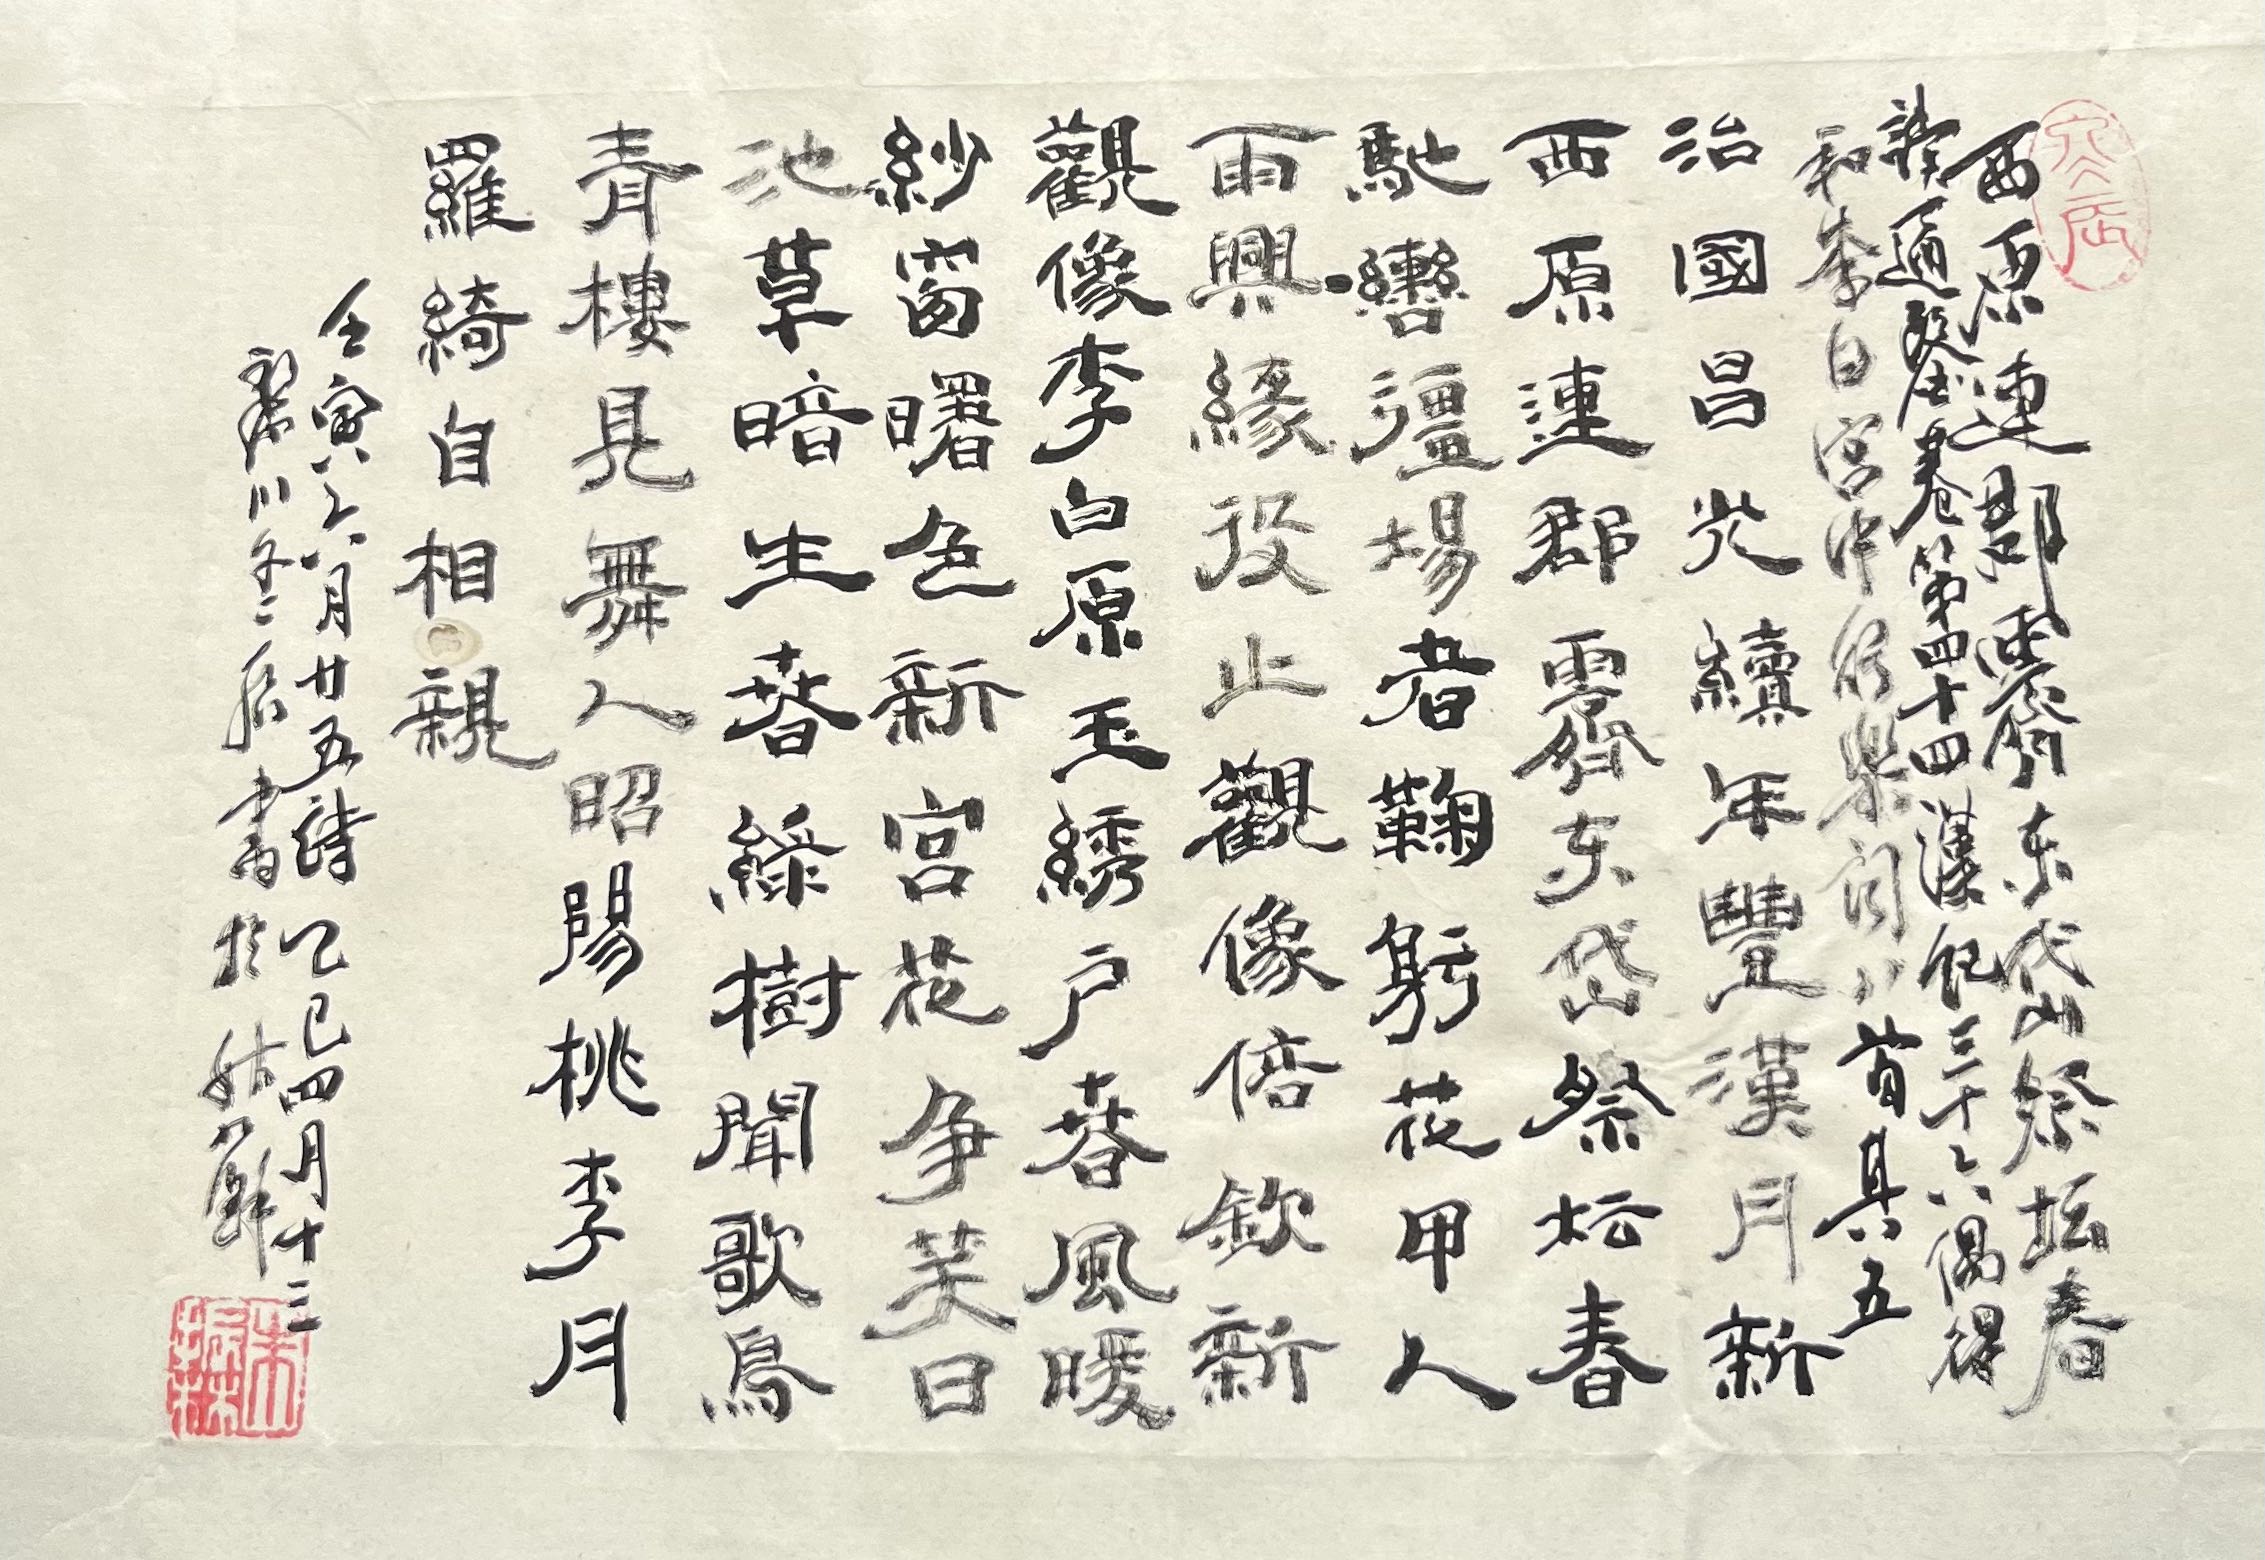 西原連郡霽东岱山祭坛春
讀通鑒卷第四十四漢紀三十六偶得
和李白宮中行樂词八首其五
治國昌光續年豐漢月新
西原連郡霽东岱祭坛春
馳轡疆場者鞠躬花甲人
雨興緣設止觀像倍欽新
觀像李白原玉綉户春風暖
紗窗曙色新宮花争笑日
池草暗生春綠樹聞歌鳥
青樓見舞人昭陽桃李月
羅綺自相親
壬寅六月廿五詩乙巳四月十三
川 書於姑蘇